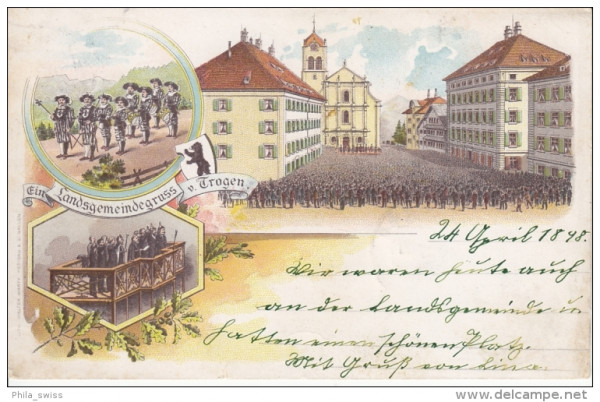 Ein Landsgemeindegruss v. Trogen.
24 April 1898.
Wir waren heute auch
an der Landsgemeinde u.
hatten einen schönen Platz.
Mit Gruß von Lina.
Phila_swiss